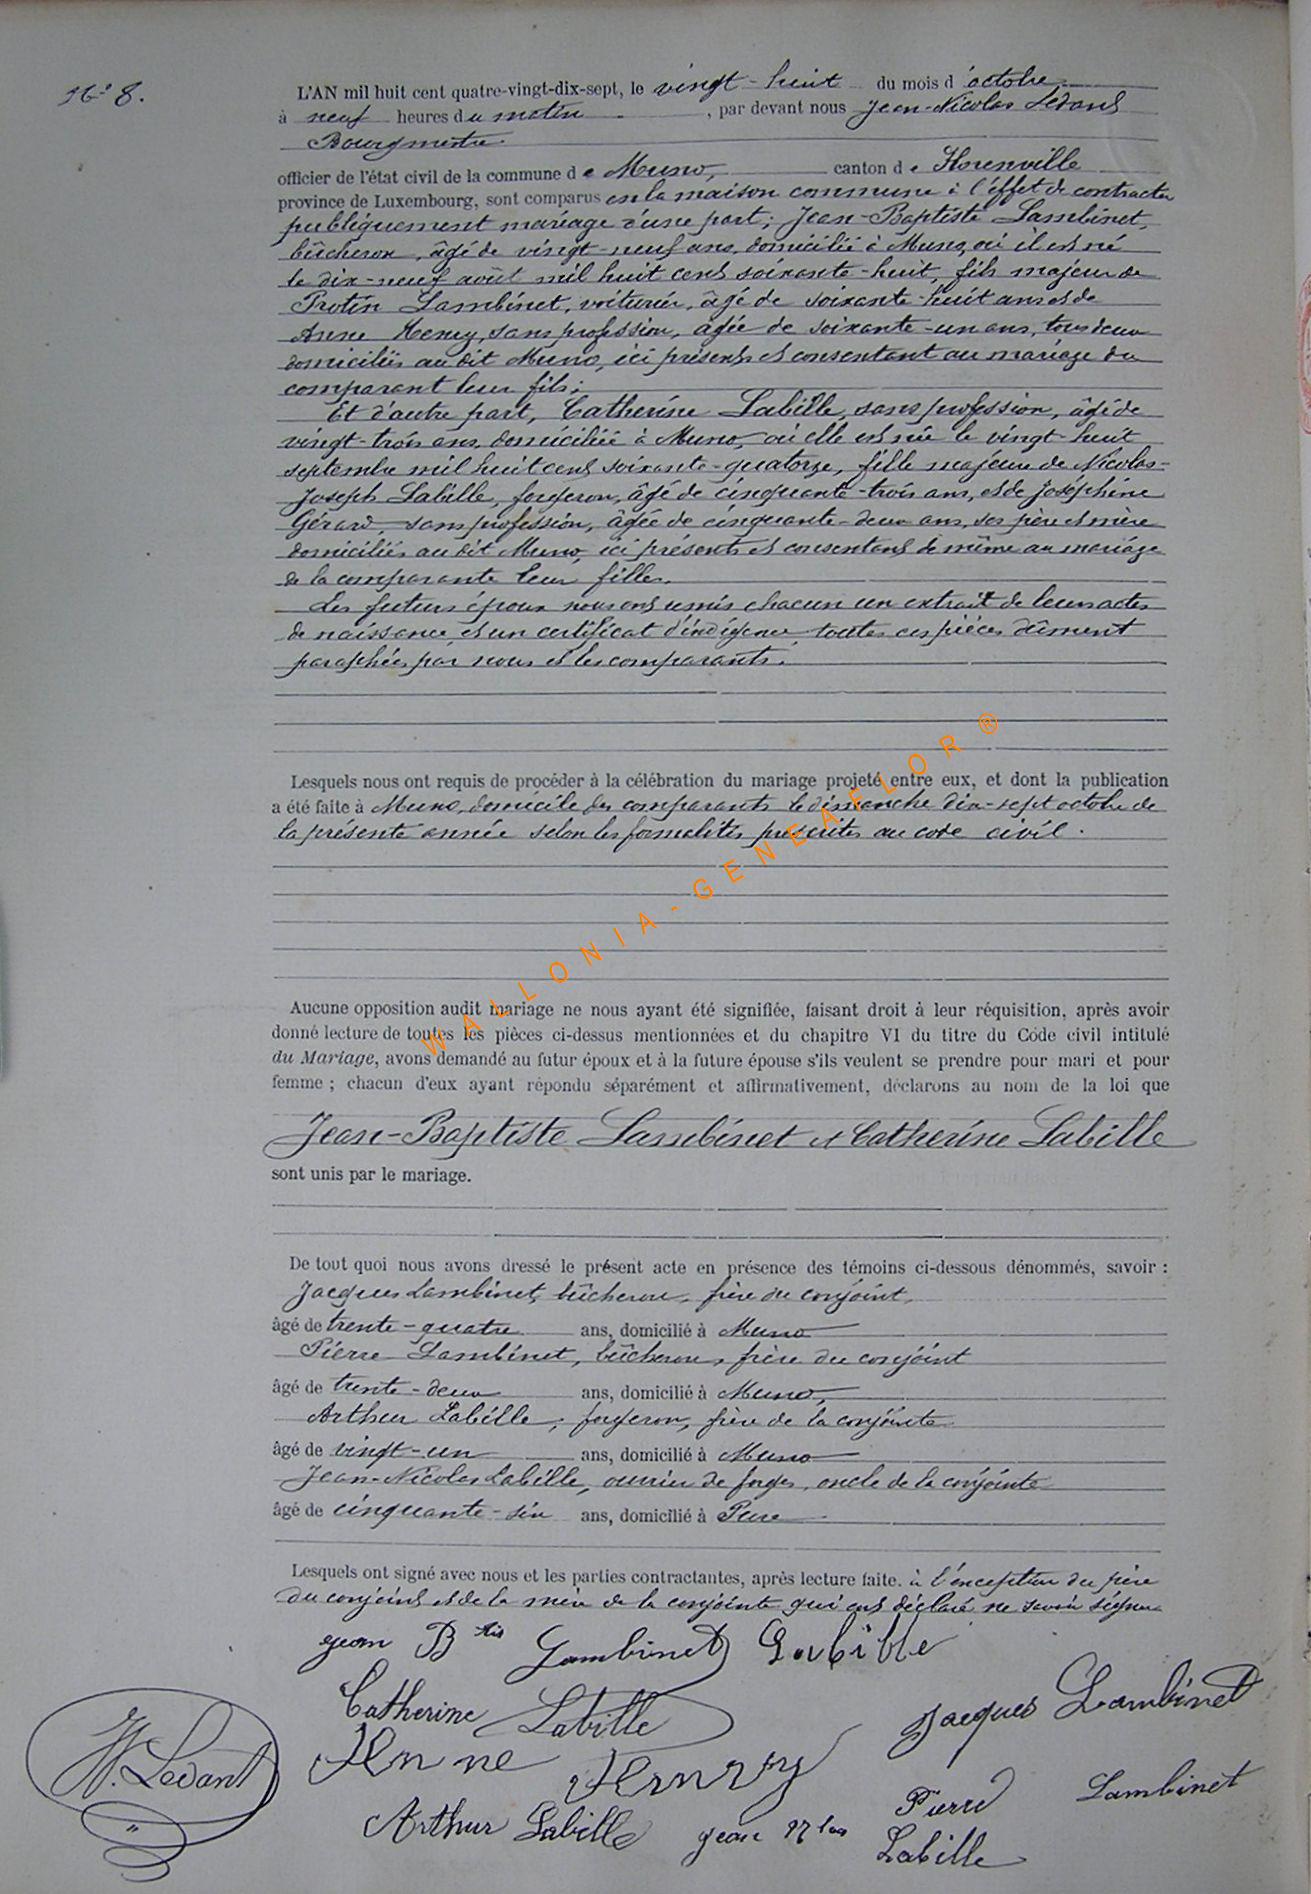 N° 8.
L'AN mil huit cent quatre-vingt-dix-sept, le vingt-huit du mois d'octobre
à neuf heures du matin, par devant nous Jean-Nicolas Ledant
Bourgmestre
officier de l'état civil de la commune de Muno, canton de Florenville
province de Luxembourg, sont comparus en la maison commune à l'effet de contracter
publiquement mariage d'une part; Jean-Baptiste Lambinet,
bûcheron, âgé de vingt-neuf ans, domicilié à Muno, où il est né
le dix-neuf août mil huit cent soixante-huit, fils majeur de
Protin Lambinet, voiturier, âgé de soixante-huit ans et de
Anne Henry, sans profession, âgée de soixante-un ans, tous deux
domiciliés au dit Muno, ici présents et consentant au mariage du
comparant leur fils;
Et d'autre part, Catherine Labille, sans profession, âgé de
vingt-trois ans, domiciliée à Muno, où elle est née le vingt-huit
septembre mil huit cent soixante-quatorze, fille majeure de Nicolas-
Joseph Labille, forgeron, âgé de cinquante-trois ans, et de Joséphine
Gérard, sans profession, âgée de cinquante-deux ans, ses père et mère
domiciliés au dit Muno, ici présents et consentant de même au mariage
de la comparante leur fille.
Les futurs époux nous ont remis chacun un extrait de leurs actes
de naissance et un certificat d'indigence toutes ces pièces dûment
paraphées par nous et les comparants.
Lesquels nous ont requis de procéder à la célébration du mariage projeté entre eux, et dont la publication
a été faite à Muno, domicile des comparants le dimanche dix-sept octobre de
la présente année selon les formalités prescrites au code civil.
WALLONIA-GENEAFLOR ®
Aucune opposition audit mariage ne nous ayant été signifiée, faisant droit à leur réquisition, après avoir
donné lecture de toutes les pièces ci-dessus mentionnées et du chapitre VI du titre du Code civil intitulé
du Mariage, avons demandé au futur époux et à la future épouse s'ils veulent se prendre pour mari et pour
femme ; chacun d'eux ayant répondu séparément et affirmativement, déclarons au nom de la loi que
Jean-Baptiste Lambinet et Catherine Labille
sont unis par le mariage.
De tout quoi nous avons dressé le présent acte en présence des témoins ci-dessous dénommés, savoir :
Jacques Lambinet, bûcheron, frère du conjoint,
âgé de trente-quatre ans, domicilié à Muno
Pierre Lambinet, bûcheron, frère du conjoint
âgé de trente-deux ans, domicilié à Muno,
Arthur Labille, forgeron, frère de la conjointe
âgé de vingt-un ans, domicilié à Muno
Jean-Nicolas Labille, ouvrier de forges, oncle de la conjointe
âgé de cinquante-six ans, domicilié à Pure
Lesquels ont signé avec nous et les parties contractantes, après lecture faite. à l'exception du père
du conjoint et de la mère de la conjointe qui ont déclaré ne savoir signer
Jean Bte Lambinet Labille
Catherine Labille Jacques Lambinet
N. Ledant
Anne Henry
Pierre Lambinet
Arthur Labille Jean Nlas Labille